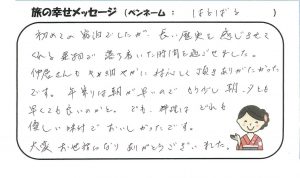 旅の幸せメッセージ (ペンネーム: しばらばら )
初めての宿泊でしたが、長い歴史も感じさせて
くれる建物で落ち着いた時間を過ごせました。
仲居さんもキメ細やかに対応して頂きありがたかった
です。年寄りは朝が早いのでもう少し朝、夕とも
早くても良いのかと。でも、料理はどれも
優しい味付でおいしかったです。
大変お世話になりありがとうございました。